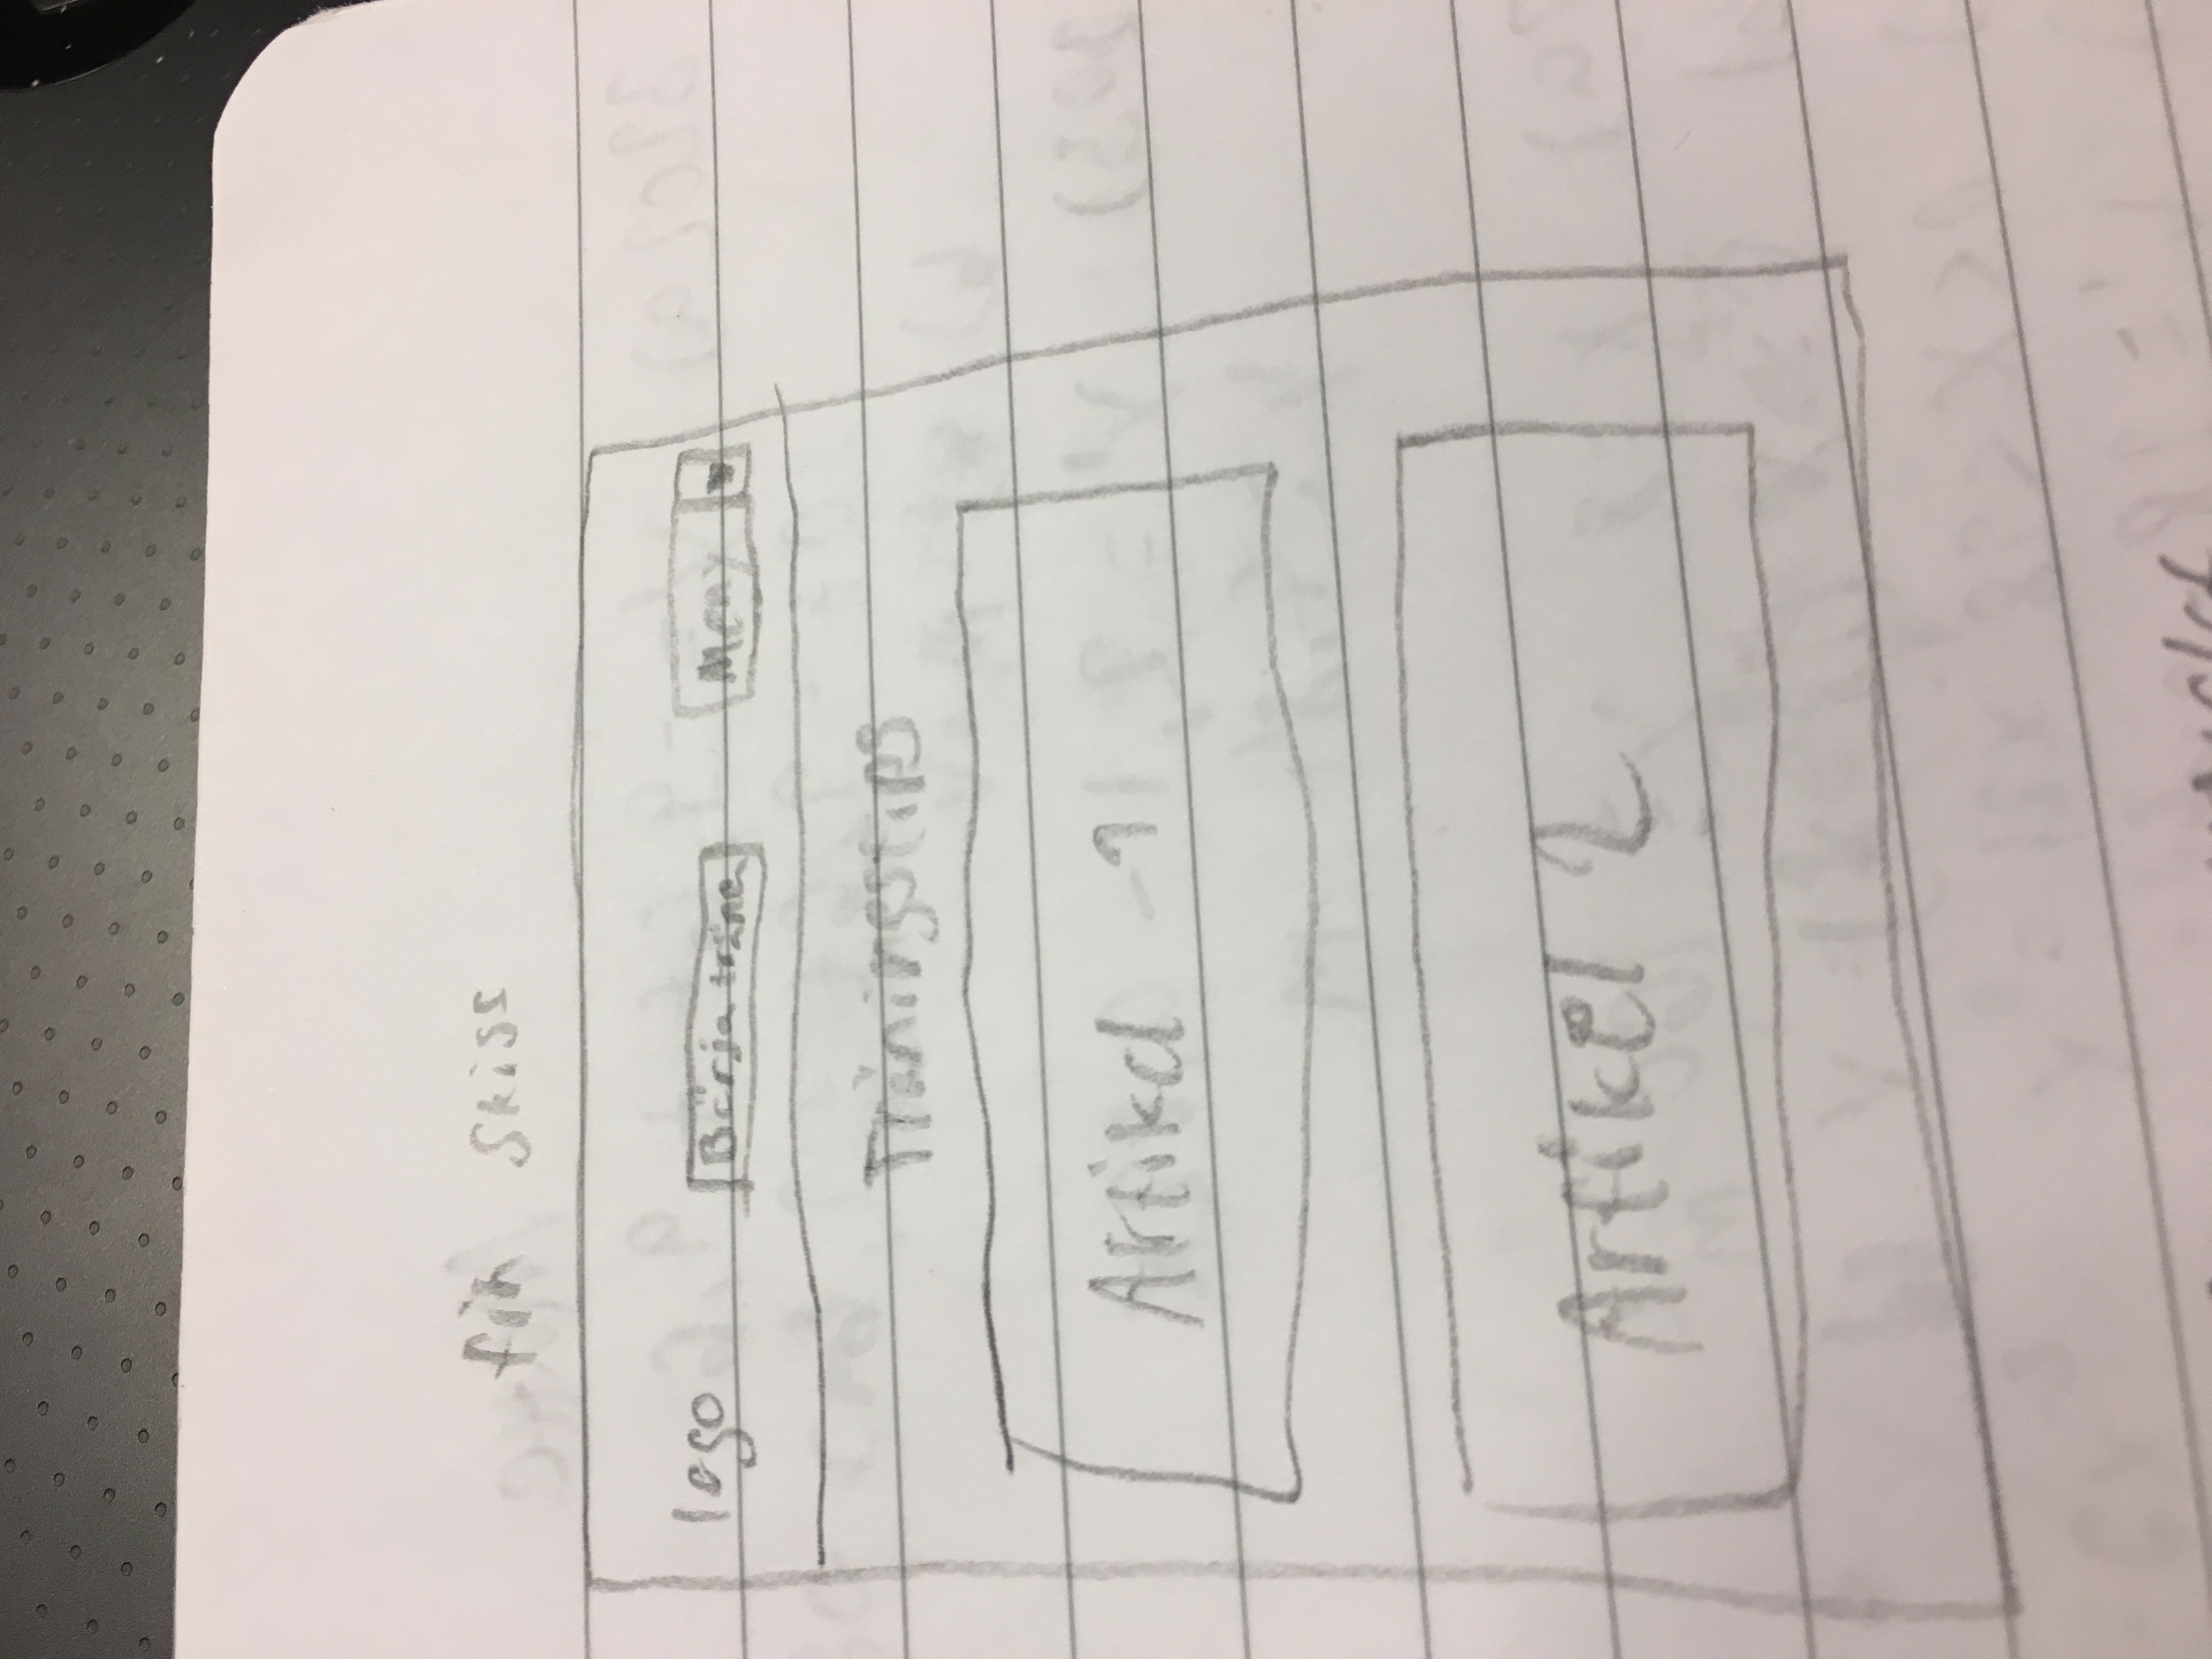 fin skiss
logo Börja träna Meny
Träningstips
Artikel 1
Artikel 2